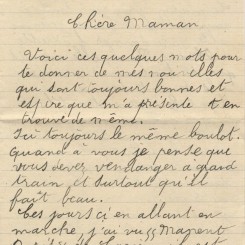 Chère Maman
Voici ces quelques mots pour
te donner de mes nouvelles
qui sont toujours bonnes et
espère que ma présente t en
trouve de même.
Ici toujours le même boulot.
Quand a vous je pense que
vous devez vendanger a grand
train et surtout qu'il
fait beau.
Ces jours ci en allant en
marche, j'ai vu